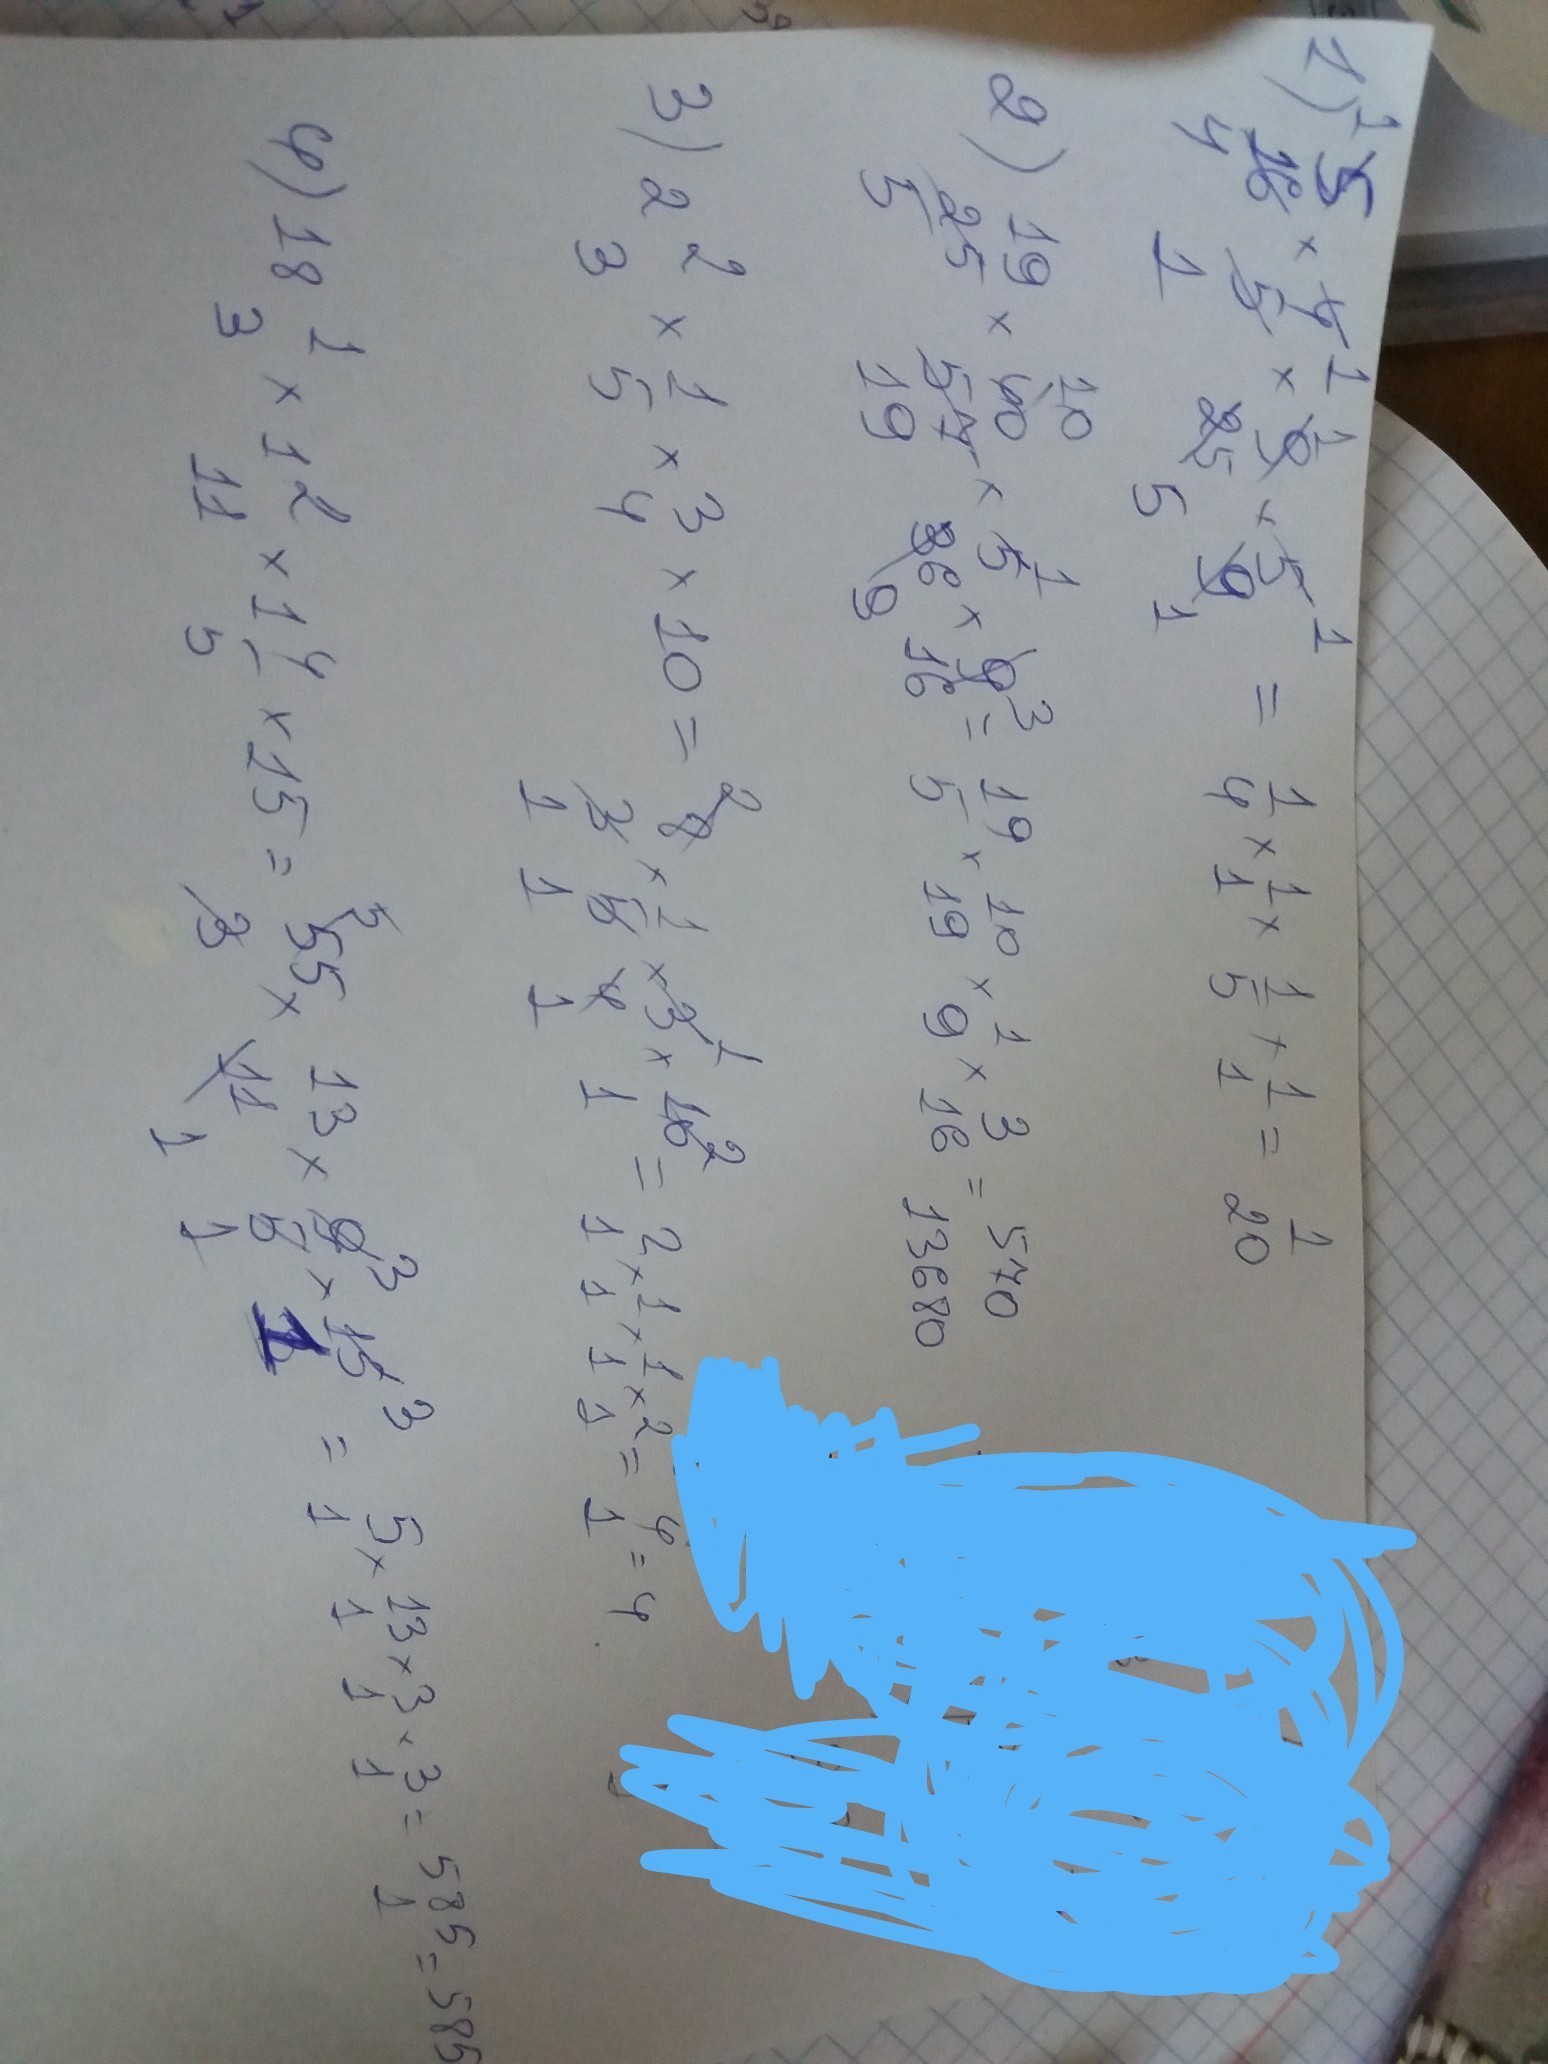 1) 5/16 × 4/5 × 9/25 × 5/9 = 1/4 × 1/1 × 1/5 × 1/1 = 1/20
2) 19/25 × 40/57 × 5/36 × 9/16 = 19/5 × 10/19 × 1/9 × 3/16 = 570/13680
3) 2 2/3 × 1/5 × 3/4 × 10 = 8/3 × 1/5 × 3/4 × 10/1 = 2/1 × 1/1 × 1/1 × 2/1 = 4/1 = 4
4) 18 1/3 × 1 2/11 × 1 4/5 × 15 = 55/3 × 13/11 × 9/5 × 15/1 = 5/1 × 13/1 × 3/1 × 3/1 = 585/1 = 585